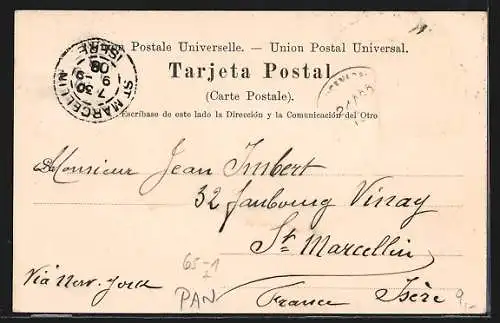 Postale Universelle. — Union Postal Universal.
Tarjeta Postal
(Carte Postale).
Escríbase de este lado la Dirección y la Comunicación del Otro
ST MARCELLIN
ISERE
7 30
9
Monsieur Jean Imbert
32 faubourg Vinay
St. Marcellin
Via New. York
France Isère
65-1
PAN
9,-